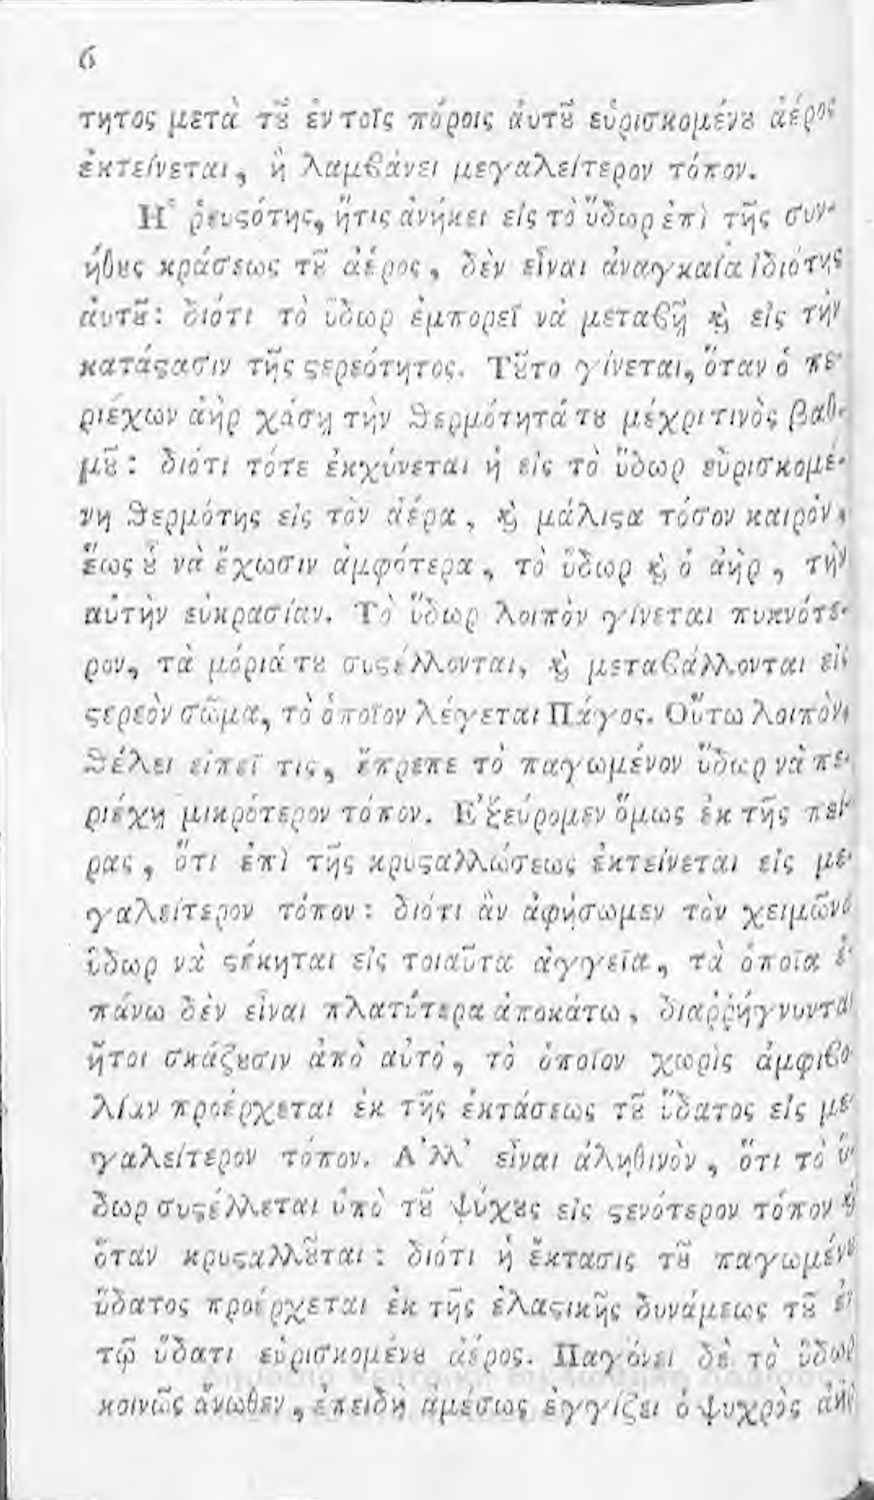 6
τητος μετὰ τȣ͂ ἐν τοῖς πόροις ἀυτȣ͂ εὑρισκομένȣ ἀέρος
ἐκτείνεται, ἢ λαμϐάνει μεγαλείτερον τόπον.
Ἡ ῥευϛότης, ἥτις ἀνήκει εἰς τὸ ὕδωρ ἐπὶ τῆς συν-
ήθȣς κράσεως τȣ͂ ἀέρος, δὲν εἶναι ἀναγκαία ἰδιότης
ἀυτȣ͂: διότι τὸ ὕδωρ ἐμπορεῖ νὰ μεταϐῇ ϗ̀ εἰς τὴν
κατάϛασιν τῆς ϛερεότητος. Τȣ͂το γίνεται, ὅταν ὁ πε-
ριέχων ἀὴρ χάσῃ τὴν θερμότητά τȣ μέχρι τινὸς βαθ-
μȣ͂: διότι τότε ἐκχύνεται ἡ εἰς τὸ ὕδωρ εὑρισκομέ-
νη θερμότης εἰς τὸν ἀέρα, ϗ̀ μάλιϛα τόσον καιρὸν,
ἕως ȣ̔͂ νὰ ἔχωσιν ἀμφότερα, τὸ ὕδωρ ϗ̀ ὁ ἀὴρ, τὴν
αὐτὴν εὐκρασίαν. Τὸ ὕδωρ λοιπὸν γίνεται πυκνότε-
ρον, τὰ μόριά τȣ συϛέλλονται, ϗ̀ μεταϐάλλονται εἰς
ϛερεὸν σῶμα, τὸ ὁποῖον λέγεται Πάγος. Οὕτω λοιπὸν,
θέλει εἰπεῖ τις, ἔπρεπε τὸ παγωμένον ὕδωρ νὰ πε-
ριέχῃ μικρότερον τόπον. Ἐξεύρομεν ὅμως ἐκ τῆς πεί-
ρας, ὅτι ἐπὶ τῆς κρυϛαλλώσεως ἐκτείνεται εἰς με-
γαλείτερον τόπον: διότι ἂν ἀφήσωμεν τὸν χειμῶνα
ὕδωρ νὰ ϛέκηται εἰς τοιαῦτα ἀγγεῖα, τὰ ὁποῖα ἐ-
πάνω δὲν εἶναι πλατύτερα ἀποκάτω, διαῤῥήγνυνται
ἤτοι σκάζȣσιν ἀπὸ αὐτὸ, τὸ ὁποῖον χωρὶς ἀμφιϐο-
λίαν προέρχεται ἐκ τῆς ἐκτάσεως τȣ͂ ὕδατος εἰς με-
γαλείτερον τόπον. Ἀλλ' εἶναι ἀληθινὸν, ὅτι τὸ ὕ-
δωρ συϛέλλεται ὑπὸ τȣ͂ ψύχȣς εἰς ϛενότερον τόπον ϗ̀
ὅταν κρυϛαλλȣ͂ται: διότι ἡ ἔκτασις τȣ͂ παγωμένȣ
ὕδατος προέρχεται ἐκ τῆς ἐλαϛικῆς δυνάμεως τȣ͂ ἐν
τῷ ὕδατι εὑρισκομένȣ ἀέρος. Παγόνει δὲ τὸ ὕδωρ
κοινῶς ἄνωθεν, ἐπειδὴ ἀμέσως ἐγγίζει ὁ ψυχρὸς ἀὴρ